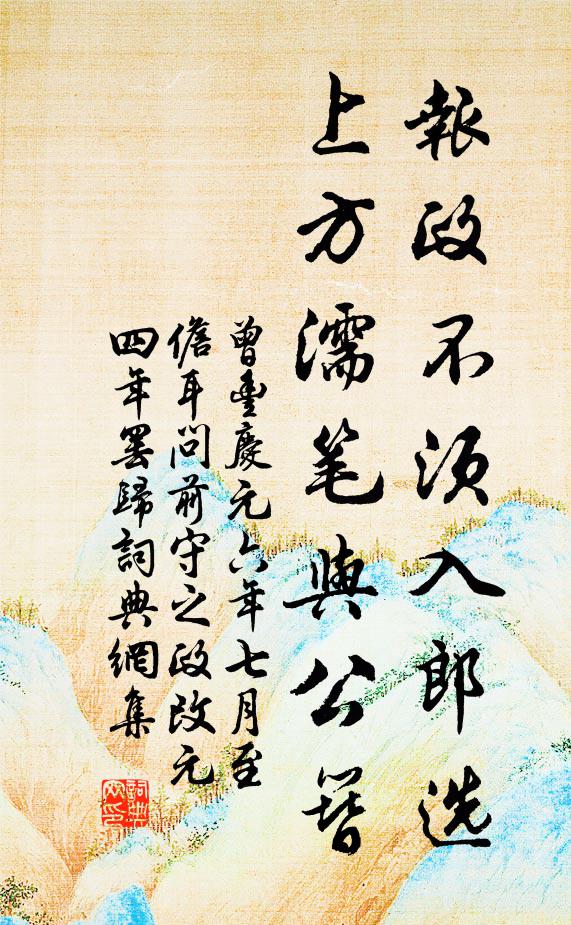 報政不須入郎选
上方濡笔與公簪
曾豊慶元六年七月至
儋耳問前守之政改元
四年罢歸詞典網集
詞典文印